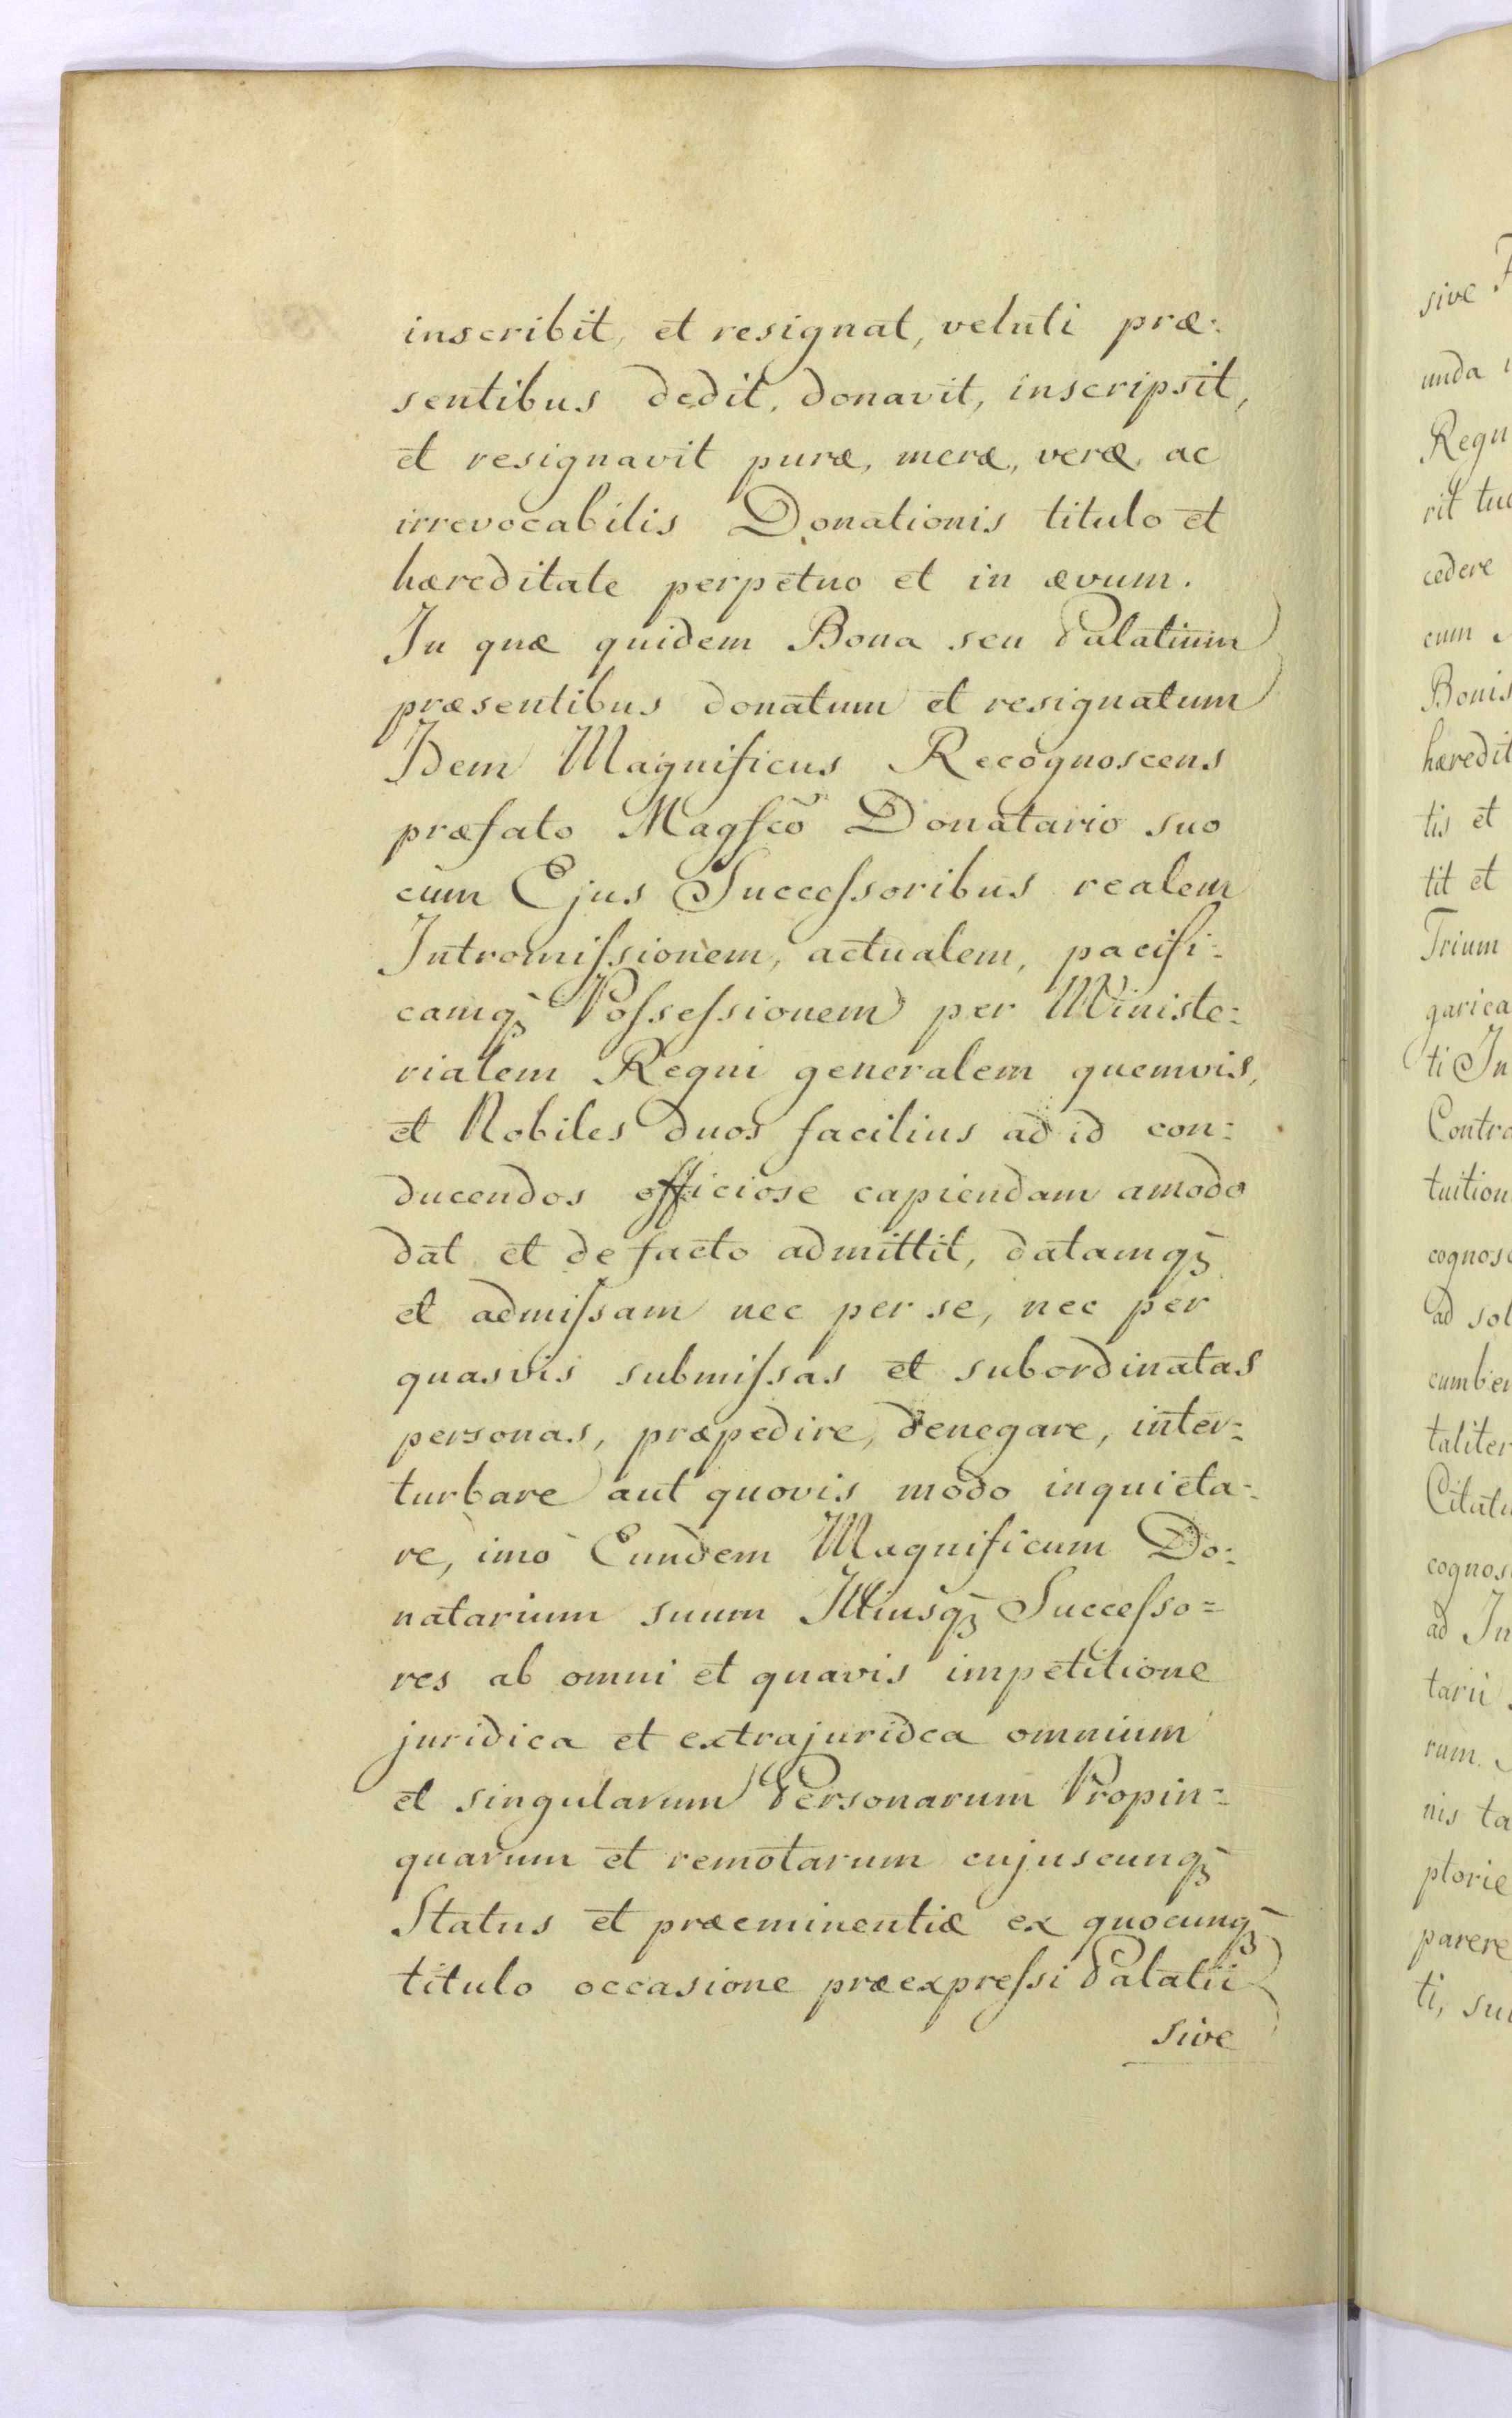 inscribit, et resignat, veluti præ:
sentibus dedit, donavit, inscripsit,
et resignavit puræ, meræ, veræ, ac
irrevocabilis Donationis titulo et
hæreditate perpetuo et in ævum.
In quæ quidem Bona seu Palatium
præsentibus donatum et resignatum
Idem Magnificus Recognoscens
præfato Magfcõ Donatario suo
cum Ejus Succeſsoribus realem
Intromiſsionem, actualem, pacifi:
camqꝫ Poſseſsionem per Ministe:
rialem Regni generalem quemvis,
et Nobiles duos facilius ad id con:
ducendos officiose capiendam amodo
dat et de facto admittit, datamqꝫ
et admiſsam nec per se, nec per
quasvis submiſsas et subordinatas
personas, præpedire, denegare, inter:
turbare aut quovis modo inquieta:
re, imò Eundem Magnificum Do:
natarium suum Illiusqꝫ Succeſso=
res ab omni et quavis impetitione
juridica et extrajuridca omnium
et singularum Personarum Propin:
quarum et remotarum cujuscunqꝫ
Status et præeminentiæ ex quocunqꝫ
titulo occasione præexpreſsi Palatii
sive
sive
unda
Regn
rit tue
cedere
cum
Bonis
hæredit
tis et
tit et
Trium
garica
ti In
Contra
tuition
cognosc
ad sol
cumben
taliter
Citatu
cognos
ad In
tarii
rum.
nis ta
ptorie
parere
ti, su